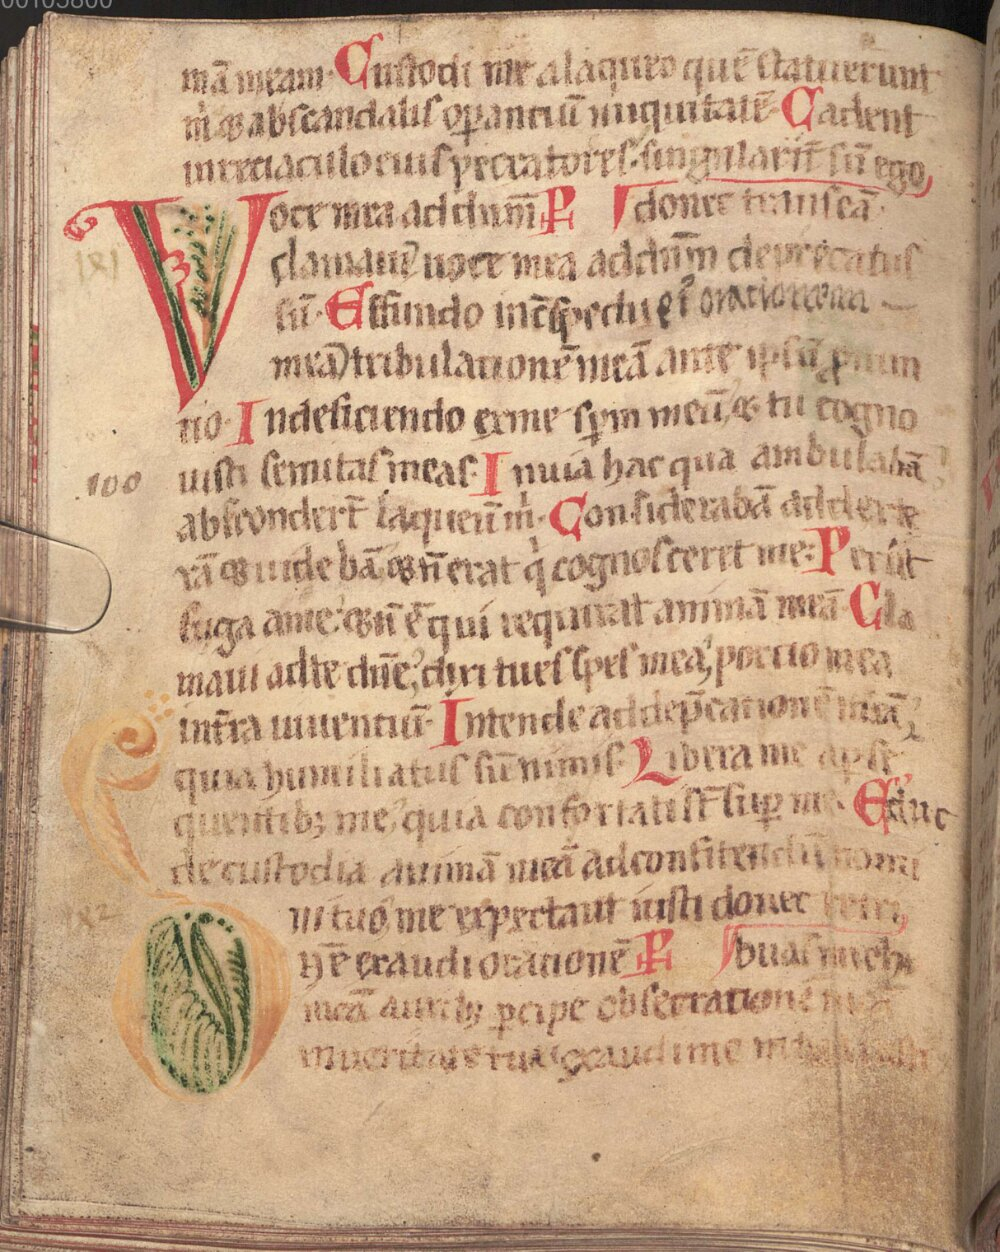 mā meam· Custodi me alaqueo quē statuerunt
m̄ & abscandalis operantiū iniquitatē· Cadent
inretiaculo eius peccatores· singularit̄ sū ego
Voce mea addnm̄ PS donec transeā·
clamaui voce mea addnm̄ deprecatus
sū· Effundo inc̄spectu ei' orationem
meā tribulationē meā ante ipsū pnun
tio· Indeficiendo exme spm meū, & tu cogno
uisti semitas meas· Inuia hac qua ambulabā
abscondert̄ laqueum m̄· Considerabā addexte
rā & uidebā & n̄ erat q̇ cognosceret me· Periit
fuga ame & n̄ ē qui requirat animā meā· Cla
maui adte dn̄e, dixi tu es spes mea, portio mea
int̄ra uiuentiū· Intende addep̄cationē meā,
quia humiliatus sū nimis· Libera me apse
quentib; me, quia confortati st̄ sup me· Educ
de custodia animā meā adconfitendū nomi
ni tuo, me expectant iusti donec retri
Dn̄e exaudi orationē PS buas michi
meā aurib; pcipe obsecrationē meā
inueritate tua exaudi me
181
100
182